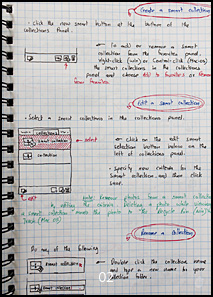 Create a smart collections
· click the new smart button at the bottom of the
collections Panel.
To add or remove a smart
collection from the favorites panel,
Right-click (win) or Control-click (Mac-OS)
the smart collections in the collections
panel and choose Add to favorites or Remove
from favorites
Edit a smart collection
· Select a smart collections in the collections panel.
collections
smart collection
collection
select
click on the edit smart
collection button below on the
left of collections panel
· Specify new criteria for the
smart collection and then click
save.
edit
note: Remove photos from a smart collection
by editing the criteria. Deleting a photo while viewing
a smart collection moves the photo to the Recycle Bin (win)
Trash (Mac OS)
02
Rename a collection
Do any of the following
smart collection
Double click the collection name
and type a new name